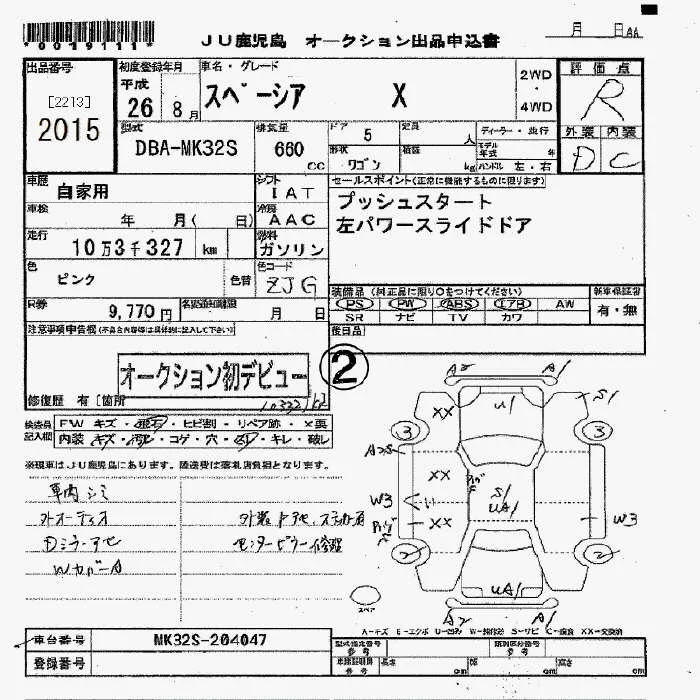 *0019111*
JU鹿児島 オークション出品申込書
月 日
出品番号
[2213]
2015
初度登録年月
平成
26 8月
車名・グレード
スペーシア X
2WD
・
4WD
評価点
R
外装 内装
D C
型式
DBA-MK32S
排気量
660
cc
ドア 5
定員 人
形状 ワゴン
積載 kg
ディーラー・並行
モデル年式 年
ハンドル 左・右
車歴
自家用
シフト
IAT
車検
年 月( 日)
冷房
AAC
走行
10万3千327 km
燃料
ガソリン
色
ピンク
色替
色コード
ZJG
R券
9,770円
名義変更期限
月 日
セールスポイント(正常に機能するものに限ります)
プッシュスタート
左パワースライドドア
装備品(純正品に限り○をつけてください)
新車保証書
PS PW ABS エアB AW
有・無
SR ナビ TV カワ
後日品
注意事項申告欄(不具合内容等は具体的に記入して下さい)
オークション初デビュー
②
修復歴 有 〔箇所
103327km
検査員記入欄
FW キズ・飛石・ヒビ割・リペア跡・×要
内装 キズ・汚れ・コゲ・穴・凹・キレ・破レ
※現車はJU鹿児島にあります。陸送費は落札店負担となります。
車内シミ
外オーディオ
Dミラーアセ
WカバーA
A2 A1
XX U1 S1
3 3
A2S
XX
S1
UA1
W3
XX
W3
2 2
UA1
スペア
A2 A1
A-キズ E-エクボ U-凹み W-補修跡 S-サビ C-腐食 XX-交換済
車台番号
MK32S-204047
登録番号
型式指定番号
参考
類別区分番号
参考
車庫証明用
参考
長さ cm
幅 cm
高さ cm